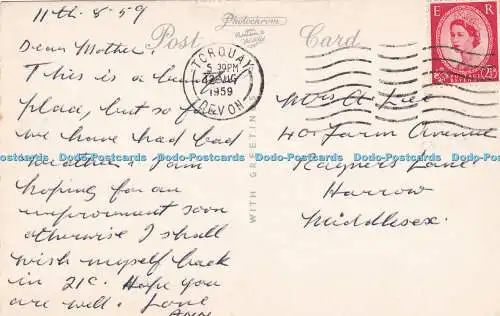 11th. 8. 59
Dear Mother,
This is a
place, but so far
we have had bad
weather. I am
hoping for an
improvement soon
otherwise I shall
wish myself back
in 21c. Hope you
are well. Love
Ann
Post Card
Photochrom
WITH GREETINGS
TORQUAY
5.30PM
12 AUG
1959
DEVON
E R
Mrs A. Lee
40 Farm Avenue
Rayners Lane
Harrow
Middlesex.
Dodo-Postcards Dodo-Postcards Dodo-Postcards Dodo-Postcards Dodo-Postcards Dodo-Postcards